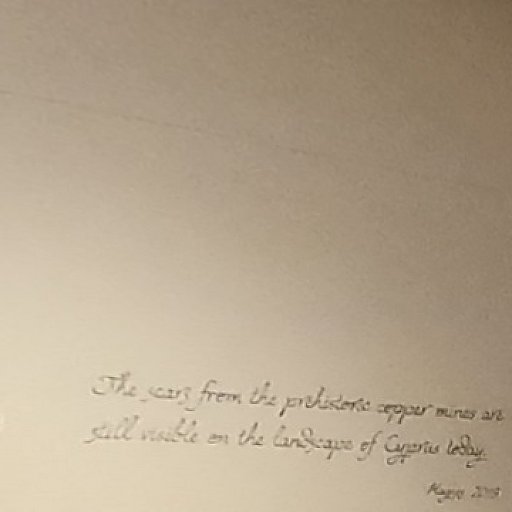 The scars from the prehistoric copper mines are
still visible on the landscape of Cyprus today.
2019